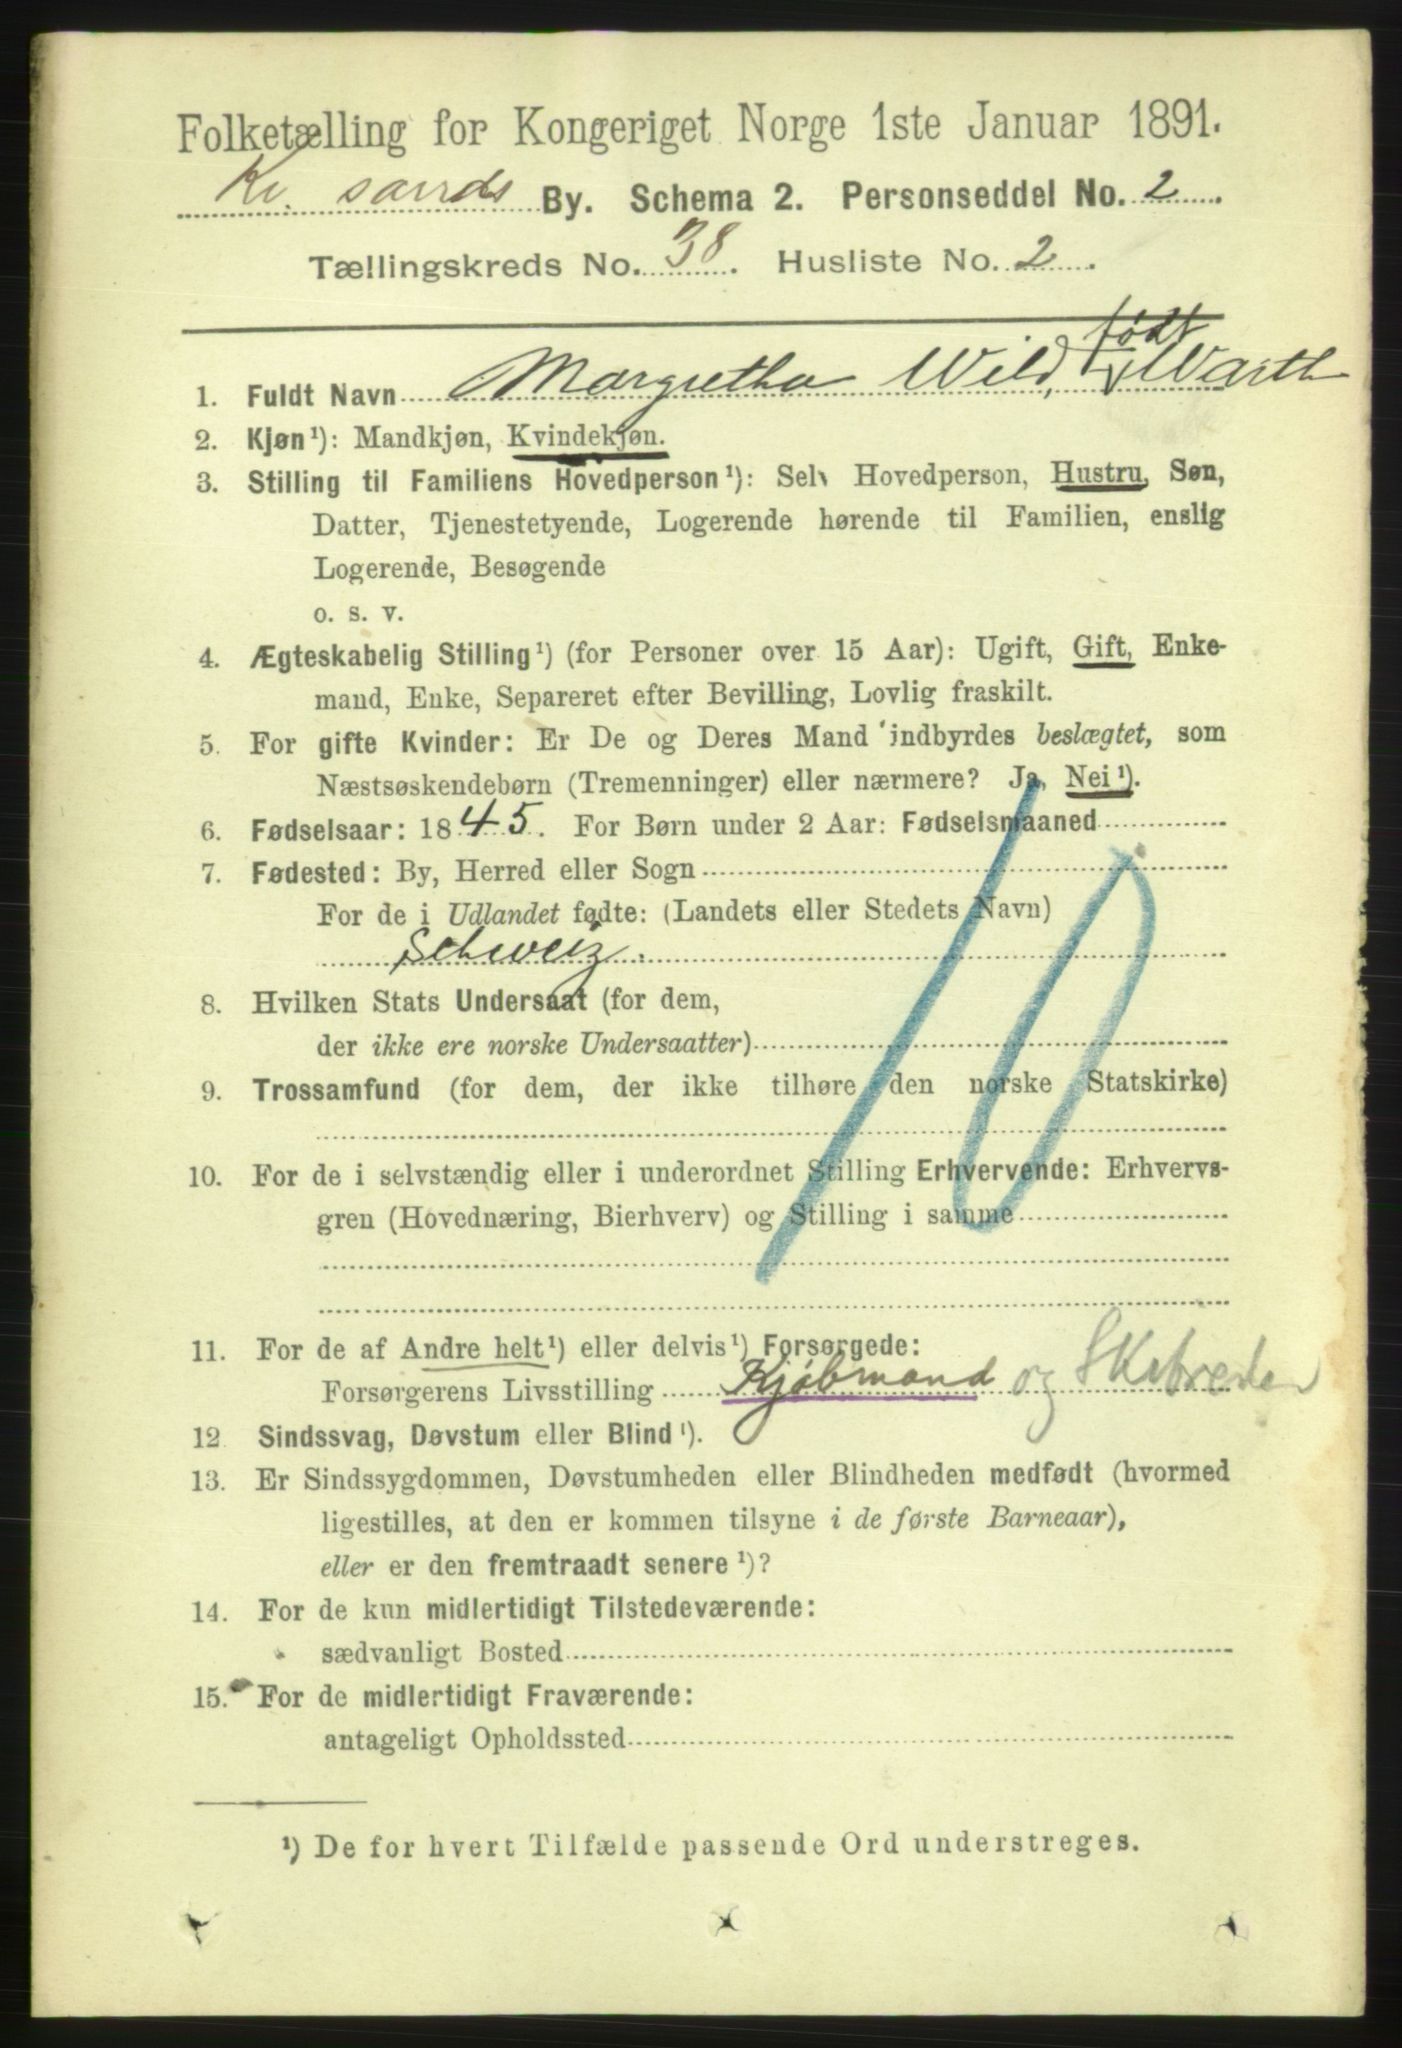 Folketælling for Kongeriget Norge 1ste Januar 1891.
Kr. sands By. Schema 2. Personseddel No. 2.
Tællingskreds No. 38. Husliste No. 2.
født
1. Fuldt Navn Margretha Wild, Warth
2. Kjøn¹): Mandkjøn, Kvindekjøn.
3. Stilling til Familiens Hovedperson¹): Selv Hovedperson, Hustru, Søn,
Datter, Tjenestetyende, Logerende hørende til Familien, enslig
Logerende, Besøgende
o. s. v.
4. Ægteskabelig Stilling¹) (for Personer over 15 Aar): Ugift, Gift, Enke-
mand, Enke, Separeret efter Bevilling, Lovlig fraskilt.
5. For gifte Kvinder: Er De og Deres Mand indbyrdes beslægtet, som
Næstsøskendebørn (Tremenninger) eller nærmere? Ja, Nei¹).
6. Fødselsaar: 1845. For Børn under 2 Aar: Fødselsmaaned
7. Fødested: By, Herred eller Sogn
For de i Udlandet fødte: (Landets eller Stedets Navn)
Schweiz.
8. Hvilken Stats Undersaat (for dem,
der ikke ere norske Undersaatter)
9. Trossamfund (for dem, der ikke tilhøre den norske Statskirke)
10. For de i selvstændig eller i underordnet Stilling Erhvervende: Erhvervs-
gren (Hovednæring, Bierhverv) og Stilling i samme
10
11. For de af Andre helt¹) eller delvis¹) Forsørgede:
Forsørgerens Livsstilling Kjøbmand og Skibsreder
12. Sindssvag, Døvstum eller Blind¹).
13. Er Sindssygdommen, Døvstumheden eller Blindheden medfødt (hvormed
ligestilles, at den er kommen tilsyne i de første Barneaar),
eller er den fremtraadt senere¹)?
14. For de kun midlertidigt Tilstedeværende:
sædvanligt Bosted
15. For de midlertidigt Fraværende:
antageligt Opholdssted
¹) De for hvert Tilfælde passende Ord understreges.